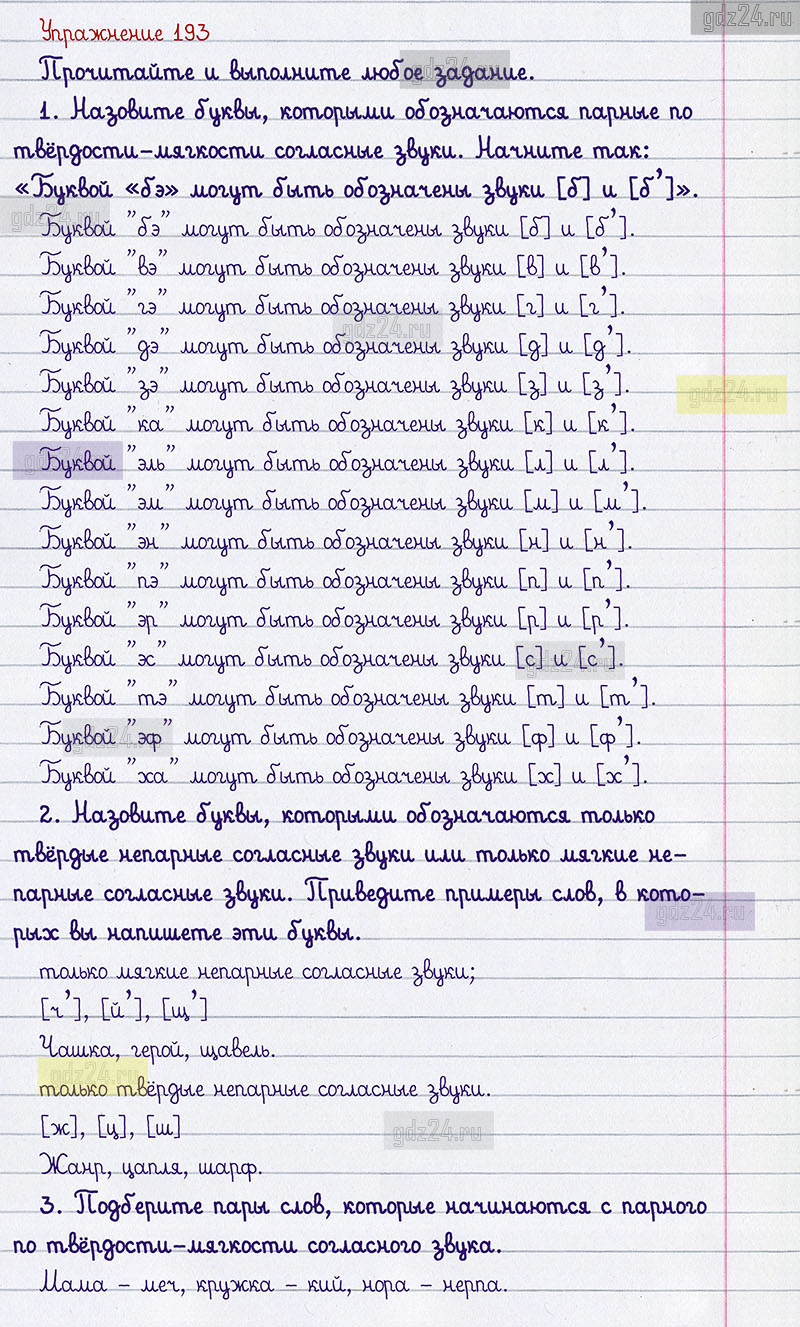 gdz24.ru
Упражнение 193
Прочитайте и выполните любое задание.
gdz24.ru
1. Назовите буквы, которыми обозначаются парные по
твёрдости-мягкости согласные звуки. Начните так:
«Буквой «бэ» могут быть обозначены звуки [б] и [б’]».
gdz24.ru
Буквой "бэ" могут быть обозначены звуки [б] и [б’].
Буквой "вэ" могут быть обозначены звуки [в] и [в’].
Буквой "гэ" могут быть обозначены звуки [г] и [г’].
gdz24.ru
Буквой "дэ" могут быть обозначены звуки [д] и [д’].
Буквой "зэ" могут быть обозначены звуки [з] и [з’].
gdz24.ru
Буквой "ка" могут быть обозначены звуки [к] и [к’].
Буквой "эль" могут быть обозначены звуки [л] и [л’].
gdz24.ru
Буквой "эм" могут быть обозначены звуки [м] и [м’].
Буквой "эн" могут быть обозначены звуки [н] и [н’].
Буквой "пэ" могут быть обозначены звуки [п] и [п’].
Буквой "эр" могут быть обозначены звуки [р] и [р’].
Буквой "эс" могут быть обозначены звуки [с] и [с’].
gdz24.ru
Буквой "тэ" могут быть обозначены звуки [т] и [т’].
Буквой "эф" могут быть обозначены звуки [ф] и [ф’].
gdz24.ru
Буквой "ха" могут быть обозначены звуки [х] и [х’].
2. Назовите буквы, которыми обозначаются только
твёрдые непарные согласные звуки или только мягкие не-
парные согласные звуки. Приведите примеры слов, в кото-
gdz24.ru
рых вы напишете эти буквы.
только мягкие непарные согласные звуки;
[ч’], [й’], [щ’]
Чашка, герой, щавель.
gdz24.ru
только твёрдые непарные согласные звуки.
[ж], [ц], [ш]
gdz24.ru
Жанр, цапля, шарф.
3. Подберите пары слов, которые начинаются с парного
по твёрдости-мягкости согласного звука.
Мама - меч, кружка - кий, нора - нерпа.